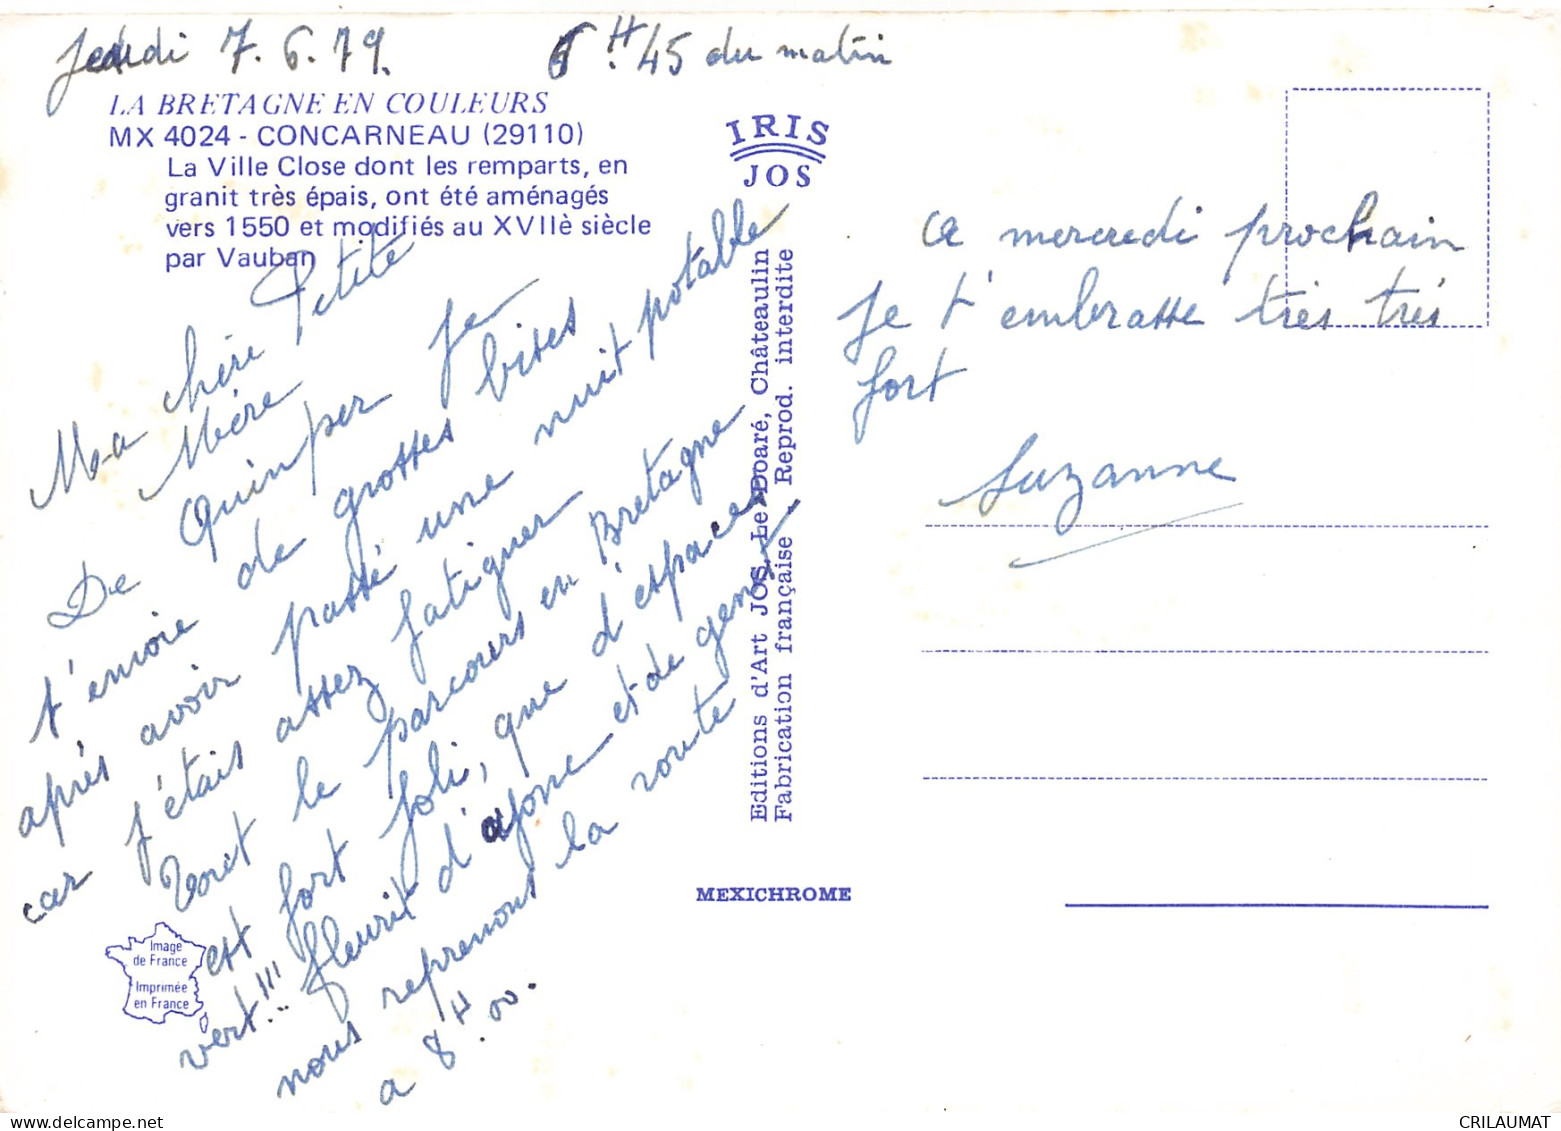 Jeudi 7.6.79. 6H.45 du matin
LA BRETAGNE EN COULEURS
MX 4024 - CONCARNEAU (29110)
La Ville Close dont les remparts, en
granit très épais, ont été aménagés
vers 1550 et modifiés au XVIIè siècle
par Vauban
Ma chère Petite
Mère
De Quimper Je
t'envoie de grosses bises
après avoir passé une nuit potable
car j'étais assez fatiguer
tout le parcours en Bretagne
est fort joli, que d'espaces
vert!!! fleurit d'ajonc et de genet
nous reprenons la route
a 8H.00.
IRIS
JOS
Editions d'Art JOS Le Doaré, Châteaulin
Fabrication française . Reprod. interdite
MEXICHROME
Image
de France
Imprimée
en France
a mercredi prochain
Je t'embrasse très très
fort
Suzanne
CRILAUMAT